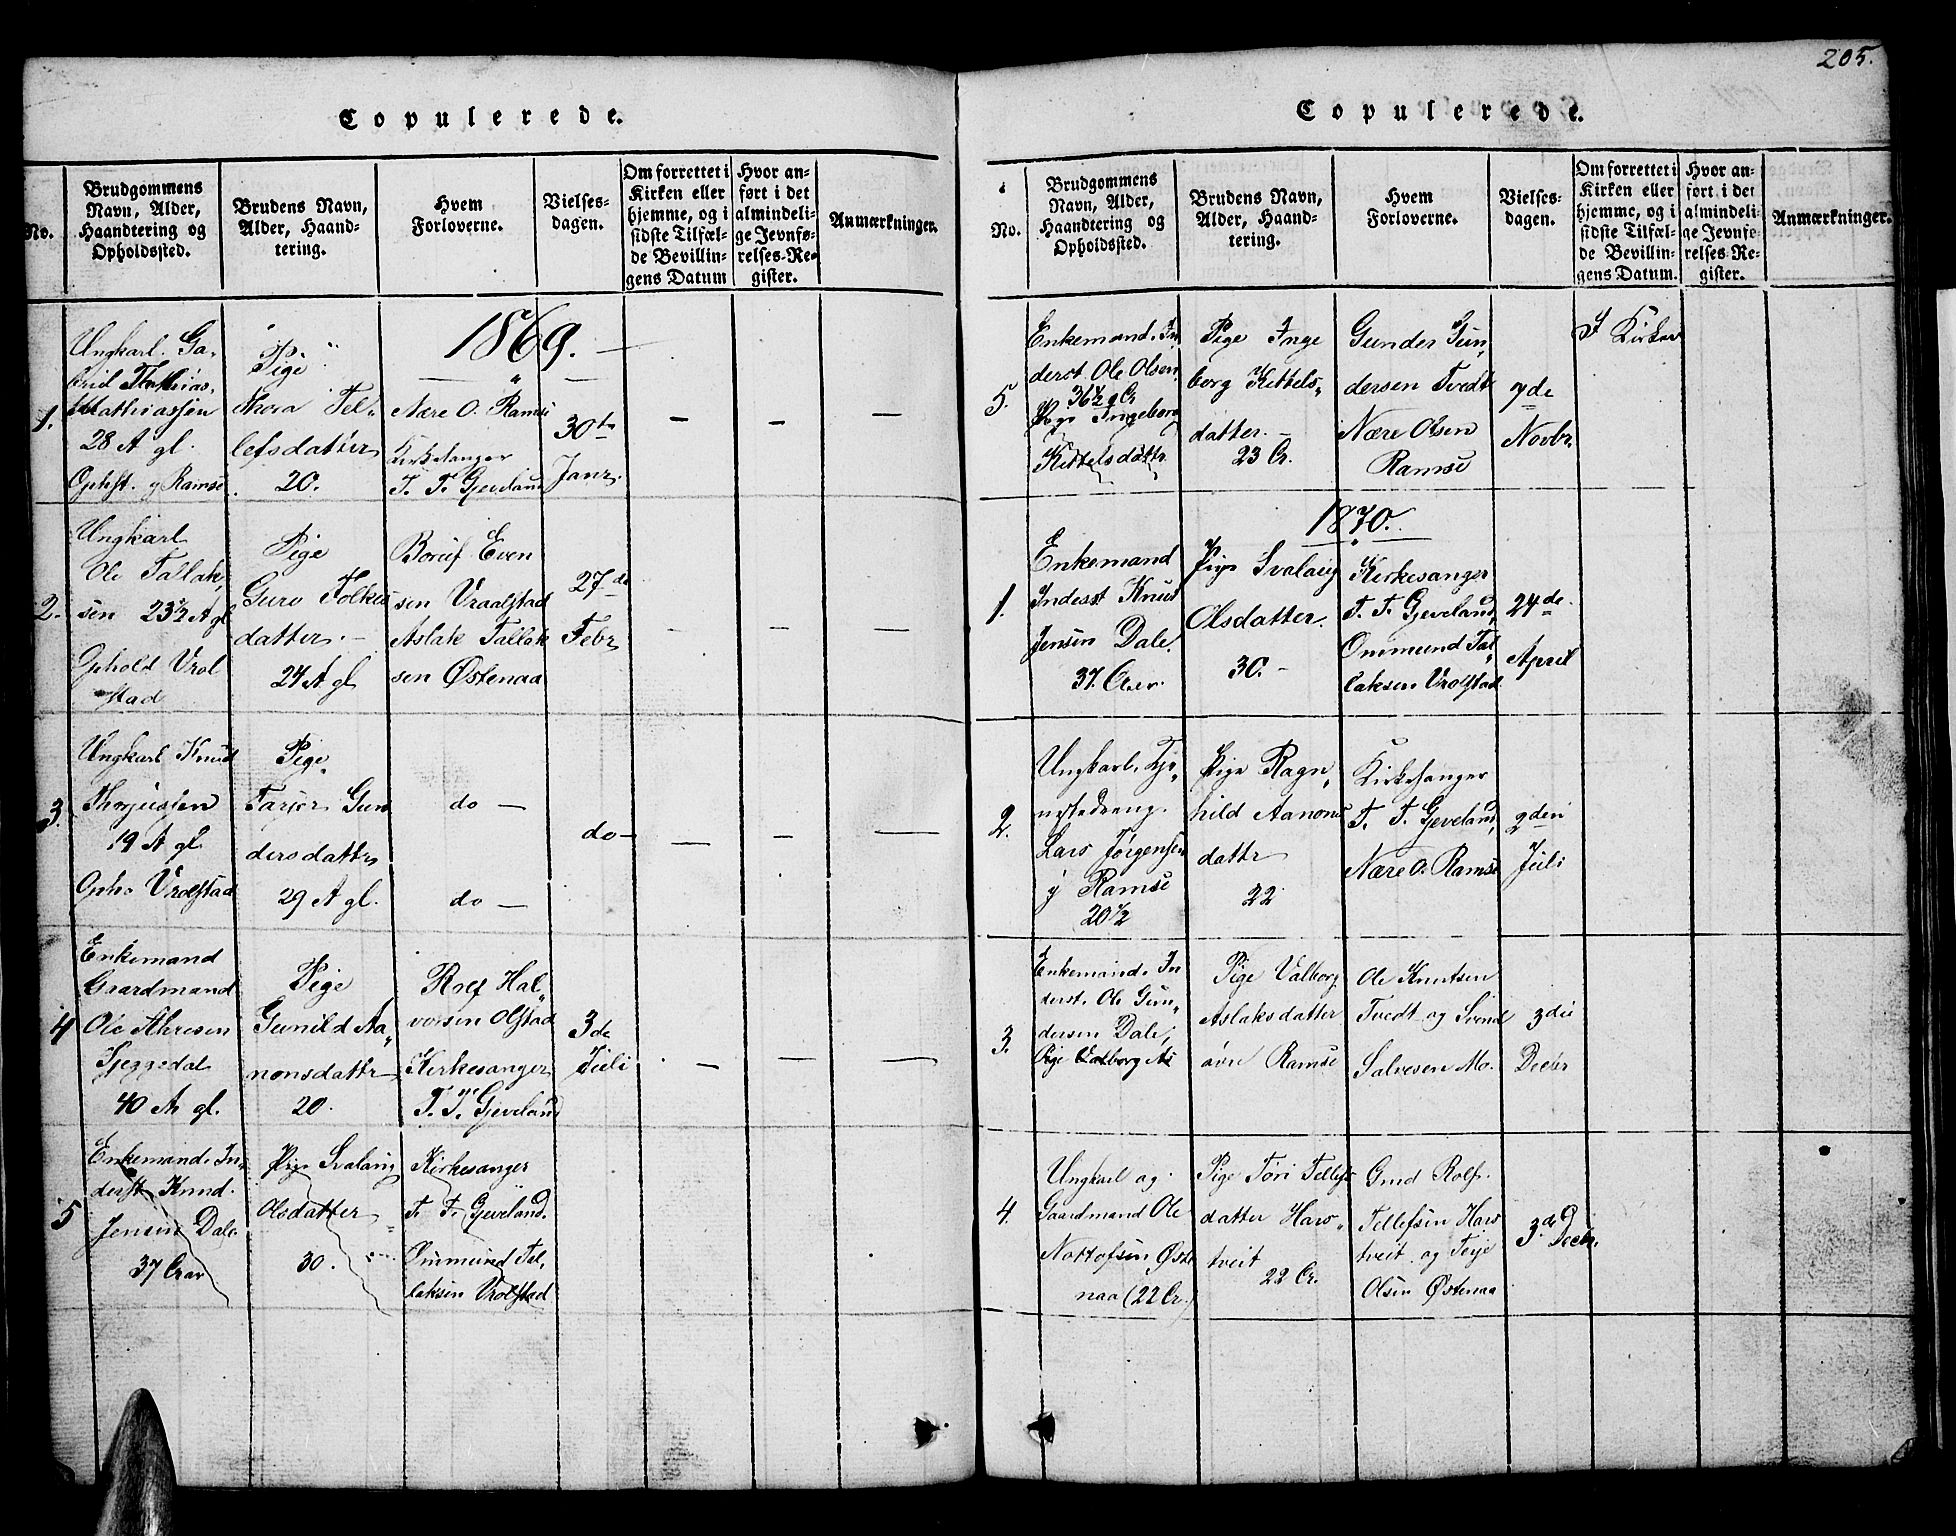 205.
Copulerede.
No.
Brudgommens
Navn, Alder,
Haandtering og
Opholdssted.
Brudens Navn,
Alder, Haand-
tering.
Hvem
Forloverne.
Vielses-
dagen.
Om forrettet i
Kirken eller
hjemme, og i
sidste Tilfæl-
de Bevillin-
gens Datum
Hvor an-
ført i det
almindeli-
ge Jevnfø-
relses-Re-
gister.
Anmærkninger.
1869.
1.
Ungkarl. Ga-
briel
Mathiassen
28 A gl.
Ophst. y Ramse
Pige
Thora Tel-
lefsdatter
20.
Nære O. Ramse
Kirkesanger
T. T. Gjeveland
30te
Janr.
— — —
2.
Ungkarl
Ole Tallak,
sen 23½ A gl
Ophold Vrol
stad
Pige
Guro Folkes
datter. —
24 A gl
Boruf Even
sen Vraalstad
Aslak Tallak
sen Østenaa
27de
Febr
— — —
3.
Ungkarl Knud
19 A gl.
Opho Vrolstad
Pige
Tarjer Gun
dersdattr
29 A gl.
do —
do —
do —
— — —
4
Enkemand
Gaardmand
Ole
40 A gl.
Pige
Gunild Aa„
nonsdattr
20.
Rolf Hal„
vorsen Olstad
Kirkesanger
T. T. Gjeveland
3de
Juli
— — —
5
Enkemand. In„
derst Knud.
Jensen Dale.
37 Aar
Pige Svalaug
Olsdatter
30.
Kirkesanger
T. T. Gjeveland.
Ommund Tal„
laksen Vrolstad
Copulerede.
No.
Brudgommens
Navn, Alder,
Haandtering og
Opholdssted.
Brudens Navn,
Alder, Haand-
tering.
Hvem
Forloverne.
Vielses-
dagen.
Om forrettet i
Kirken eller
hjemme, og i
sidste Tilfæl-
de Bevillin-
gens Datum.
Hvor an-
ført i det
almindeli-
ge Jevnfø-
relses-Re-
gister.
Anmærkninger.
5.
Enkemand. In
derst Ole Olsen.
36½ Ar
Pige Ingeborg
Kittelsdattr
Pige Inge
borg Kittels„
datter. —
23 Ar.
Gunder Gun„
dersen Tvedt
Nære Olsen
Ramse
7de
Novbr.
I Kirken
1870.
1.
Enkemand
Inderst Knud
Jensen Dale.
37. Aar.
Pige Svalaug
Olsdatter.
30. —
Kirkesanger
T. T. Gjeveland,
Ommund Tal„
laksen Vrolstad.
24de.
April
2.
Ungkarl, Tje„
nestedreng.
Lars Jørgensen
y Ramse
20½
Pige Ragn„
hild Aanons
dattr
22
Kirkesanger
T. T. Gjeveland,
Nære O. Ramse
2den
Juli
3.
Enkemand. In
derst. Ole Gun„
dersen Dale,
Pige Valborg As
Pige Valborg
Aslaksdatter
øvre Ramse
Ole Knutsen
Tvedt og Svend
Salvesen Mo.
3die
Decbr
4.
Ungkarl og
Gaardmand Ole
Nottofsen Øste
naa (22 Ar.)
Pige Tøri Tellefs
datter Hars„
tveit
22 Ar.
Gmd Rolf.
Tellefsen Hars
tveit og Terje
Olsen Østenaa
3de
Decbr.